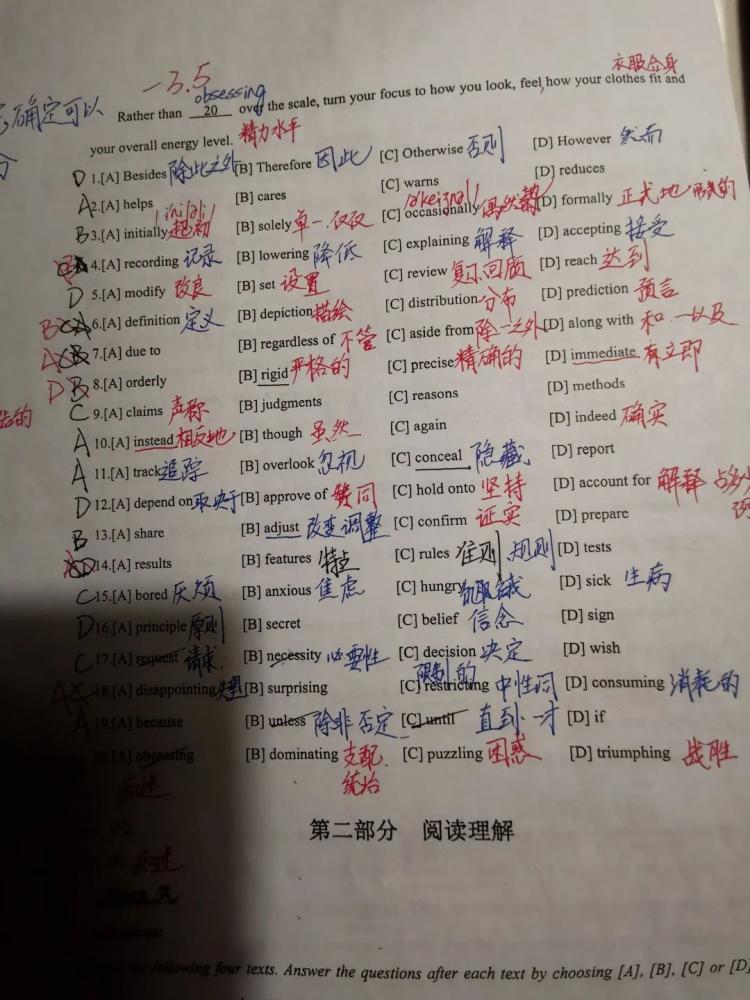 -3.5
衣服合身
确定可以
obsessing
Rather than 20 over the scale, turn your focus to how you look, feel, how your clothes fit and
your overall energy level. 精力水平
D 1.[A] Besides 除此之外 [B] Therefore 因此 [C] Otherwise 否则 [D] However 然而
A 2.[A] helps [B] cares [C] warns [D] reduces
B 3.[A] initially 起初 [B] solely 单一.仅仅 [C] occasionally 偶然 [D] formally 正式地
4.[A] recording 记录 [B] lowering 降低 [C] explaining 解释 [D] accepting 接受
D 5.[A] modify 改良 [B] set 设置 [C] review 复习.回顾 [D] reach 达到
6.[A] definition 定义 [B] depiction 描绘 [C] distribution 分布 [D] prediction 预言
7.[A] due to [B] regardless of 不管 [C] aside from 除一之外 [D] along with 和.一以及
8.[A] orderly [B] rigid 严格的 [C] precise 精确的 [D] immediate 有立即
C 9.[A] claims 声称 [B] judgments [C] reasons [D] methods
A 10.[A] instead 相反地 [B] though 虽然 [C] again [D] indeed 确实
A 11.[A] track 追踪 [B] overlook 忽视 [C] conceal 隐藏 [D] report
D 12.[A] depend on 取决于 [B] approve of 赞同 [C] hold onto 坚持 [D] account for 解释
B 13.[A] share [B] adjust 改变 调整 [C] confirm 证实 [D] prepare
14.[A] results [B] features 特点 [C] rules 准则 规则 [D] tests
C 15.[A] bored 厌烦 [B] anxious 焦虑 [C] hungry [D] sick 生病
D 16.[A] principle 原则 [B] secret [C] belief 信念 [D] sign
C 17.[A] request 请求 [B] necessity 必要性 [C] decision 决定 [D] wish
限制的
18.[A] disappointing [B] surprising [C] restricting 中性词 [D] consuming 消耗的
A 19.[A] because [B] unless 除非 否定 [C] until 直到一才 [D] if
20.[A] obsessing [B] dominating 支配 [C] puzzling 困惑 [D] triumphing 战胜
统治
第二部分 阅读理解
following four texts. Answer the questions after each text by choosing [A], [B], [C] or [D]